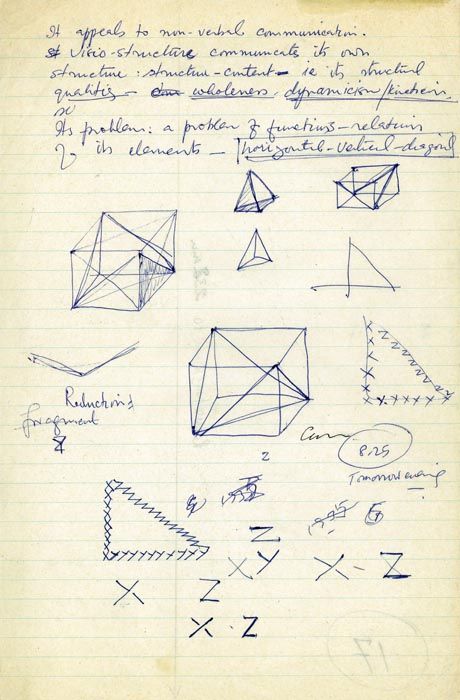 It appeals to non-verbal communication.
Visio-structure communicates its own
structure: structure-content - ie its structural
qualities - wholeness, dynamicism/kineticism
Its problem: a problem of functions-relations
its elements - horizontal-vertical-diagonal
Reduction
fragment
Z
Z
8.25
Tomorrow evening
Z
XY
X-Z
X
Z
X-Z
17